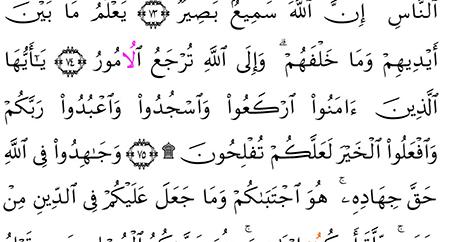 اَ۬لنَّاسِ إِنَّ اَ۬للَّهَ سَمِيعُۢ بَصِيرٞ ۝٧٣ يَعْلَمُ مَا بَيْنَ
أَيْدِيهِمْ وَمَا خَلْفَهُمْۖ وَإِلَى اَ۬للَّهِ تُرْجَعُ اُ۬لُامُورُ ۝٧٤ يَـٰٓأَيُّهَا
اَ۬لذِينَ ءَامَنُواْ اُ۪رْكَعُواْ وَاسْجُدُواْ وَاعْبُدُواْ رَبَّكُمْ
وَافْعَلُواْ اُ۬لْخَيْرَ لَعَلَّكُمْ تُفْلِحُونَ۩ ۝٧٥ وَجَـٰهِدُواْ فِے اِ۬للَّهِ
حَقَّ جِهَادِهِۦۖ هُوَ اَ۪جْتَبَىٰكُمْ وَمَا جَعَلَ عَلَيْكُمْ فِے اِ۬لدِّينِ مِنْ